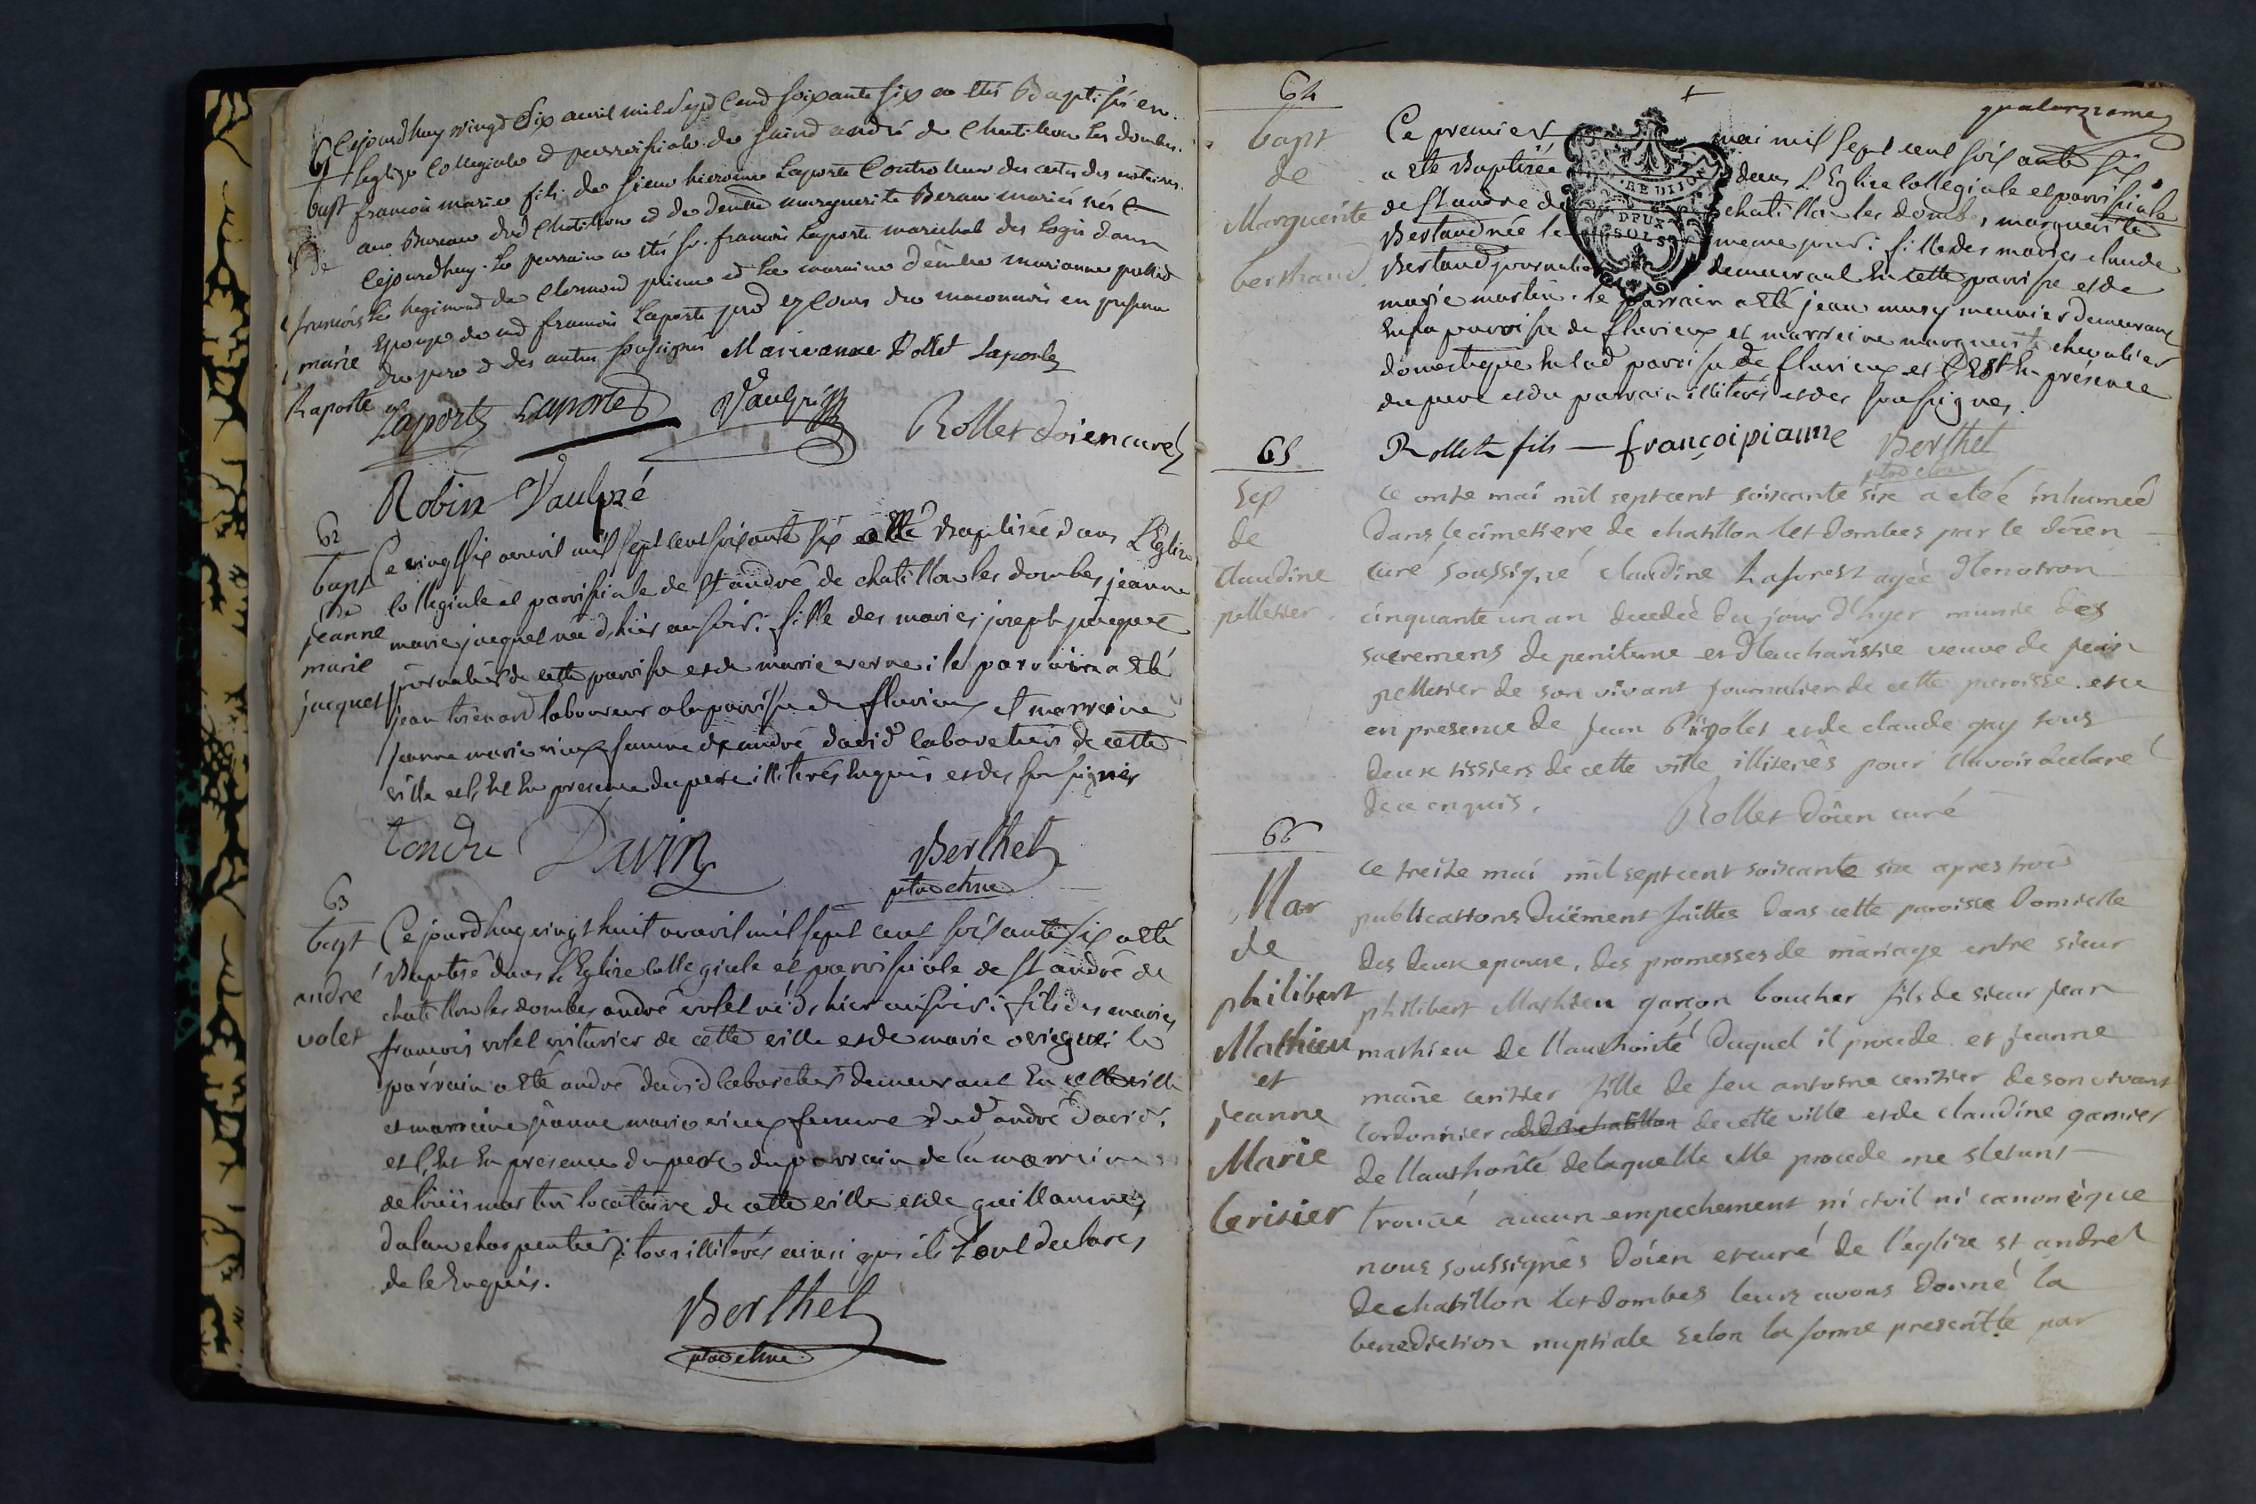 61
bapt
de
francois
marie
Laporte
Cejourdhuy vingt six avril mil sept cent soixante six a été Baptisé en
leglize Collegiale et parroissiale de Saint andré de Chatillon Les dombes
francois marie fils de sieur hierome Laporte Controlleur des actes des notaires
au Bureau dud Chatillon et de demlle marguerite Beraud mariés né
cejourdhuy. Le parrain a été sr. francois Laporte marechal des Logis dans
Le Regiment de Clermond prince et La maraine demlle marianne pollet
Epouze dud francois Laporte en presence
du pere et des autres soussignés Marieanne Pollet Laporte
Laporte Laporte Vaulpré
Rollet doien curé
Robin Vaulpré
62
bapt
de
jeanne
marie
jacquet
Ce vingt six avril mil sept cent soixante six a été Baptisée dans L'Eglise
collegiale et paroissiale de St andré de chatillon les dombes jeanne
marie jacquet née d'hier au soir: fille des mariés joseph jacquet
journalier de cette paroisse et de marie verne: le parrain a été
jean laboureur de la paroisse de flurieux et marreine
jeanne marie vieux femme de andré david cabaretier de cette
ville et c'est En presence du pere illiterés Enquis et des soussignés
tondu Davin Berthet
pbre
63
bapt
andre
volet
Ce jourdhuy vingt huit avril mil sept cent soixante six a été
Baptisé dans L'Eglise collegiale et paroissiale de St andré de
chatillon les dombes andré volet né d'hier au soir: fils des mariés
francois volet voiturier de cette ville et de marie le
parrain a été andré david cabaretier demeurant En cette ville
et marreine jeanne marie vieux femme dud andré david
et c'est En presence du pere du parrain de la marreine
de loüis martin locataire de cette ville et de guillaume
dalan charpentier: tous illiterés ainsi qu'ils L'ont declarés
de le Enquis.
Berthet
pbre
quatorzieme
64
bapt
de
Marguerite
berthaud
Ce premier mai mil sept cent soixante six
a été Baptisée dans L'Eglise collegiale et paroissiale
de St andre de chatillon les dombes, marguerite
Bertaud née le meme jour: fille des mariés claude
Bertaud journalier demeurant En cette paroisse et de
marie martin. le parrain a été jean musy meunier demeurant
En la paroisse de flurieux et marreine marguerite chevalier
domestique En lad paroisse de flurieux et C'Est En présence
du pere et du parrain illiterés et des soussignés.
Rollet fils — françoipiaume Berthet
pbre
GENERALITE DE DIJON
DEUX
SOLS
65
Sep
de
Claudine
pelletier
ce onze mai mil sept cent soixante six a etée inhumée
dans le cimetiere de chatillon les dombes par le doien
curé soussigné claudine Laforest agée d'environ
cinquante un an decedée du jour d'hyer munie des
sacremens de penitence et d'eucharistie veuve de jean
pelletier de son vivant journalier de cette paroisse. et ce
en presence de jean et de claude gay tous
deux tissiers de cette ville illiterés pour l'avoir declaré
de ce enquis.
Rollet doïen curé
66
Mar
de
philibert
Mathieu
et
jeanne
Marie
Cerisier
ce treize mai mil sept cent soixante six apres trois
publications duëment faittes dans cette paroisse domicille
des deux epoux, des promesses de mariage entre sieur
philibert Mathieu garçon boucher fils de sieur jean
mathieu de l'authorité duquel il procede. et jeanne
marie cerisier fille de feu antoine cerisier de son vivant
cordonnier de cette ville et de claudine garnier
de l'authorité de laquelle elle procede ne s'etant
trouvé aucun empechement ni civil ni canonique
nous soussignés doïen et curé de l'eglize st andre
de chatillon les dombes leurs avons donné la
benediction nuptiale selon la forme prescritte par